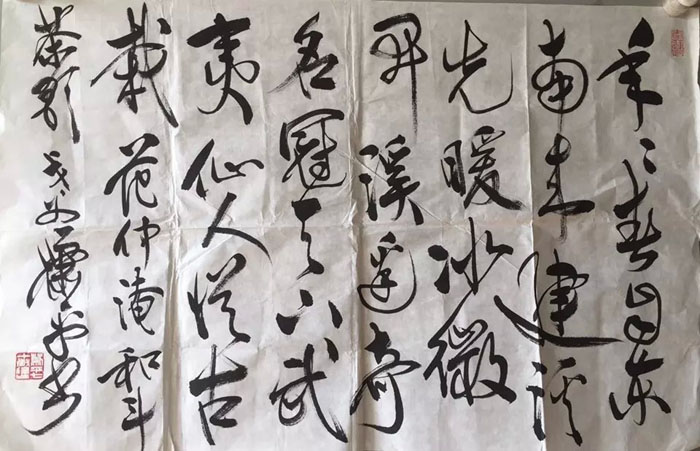 年々春自东
南来建溪
先暖冰微
开溪边奇
名冠天下武
夷仙人从古
栽 范仲淹和斗
茶歌 书